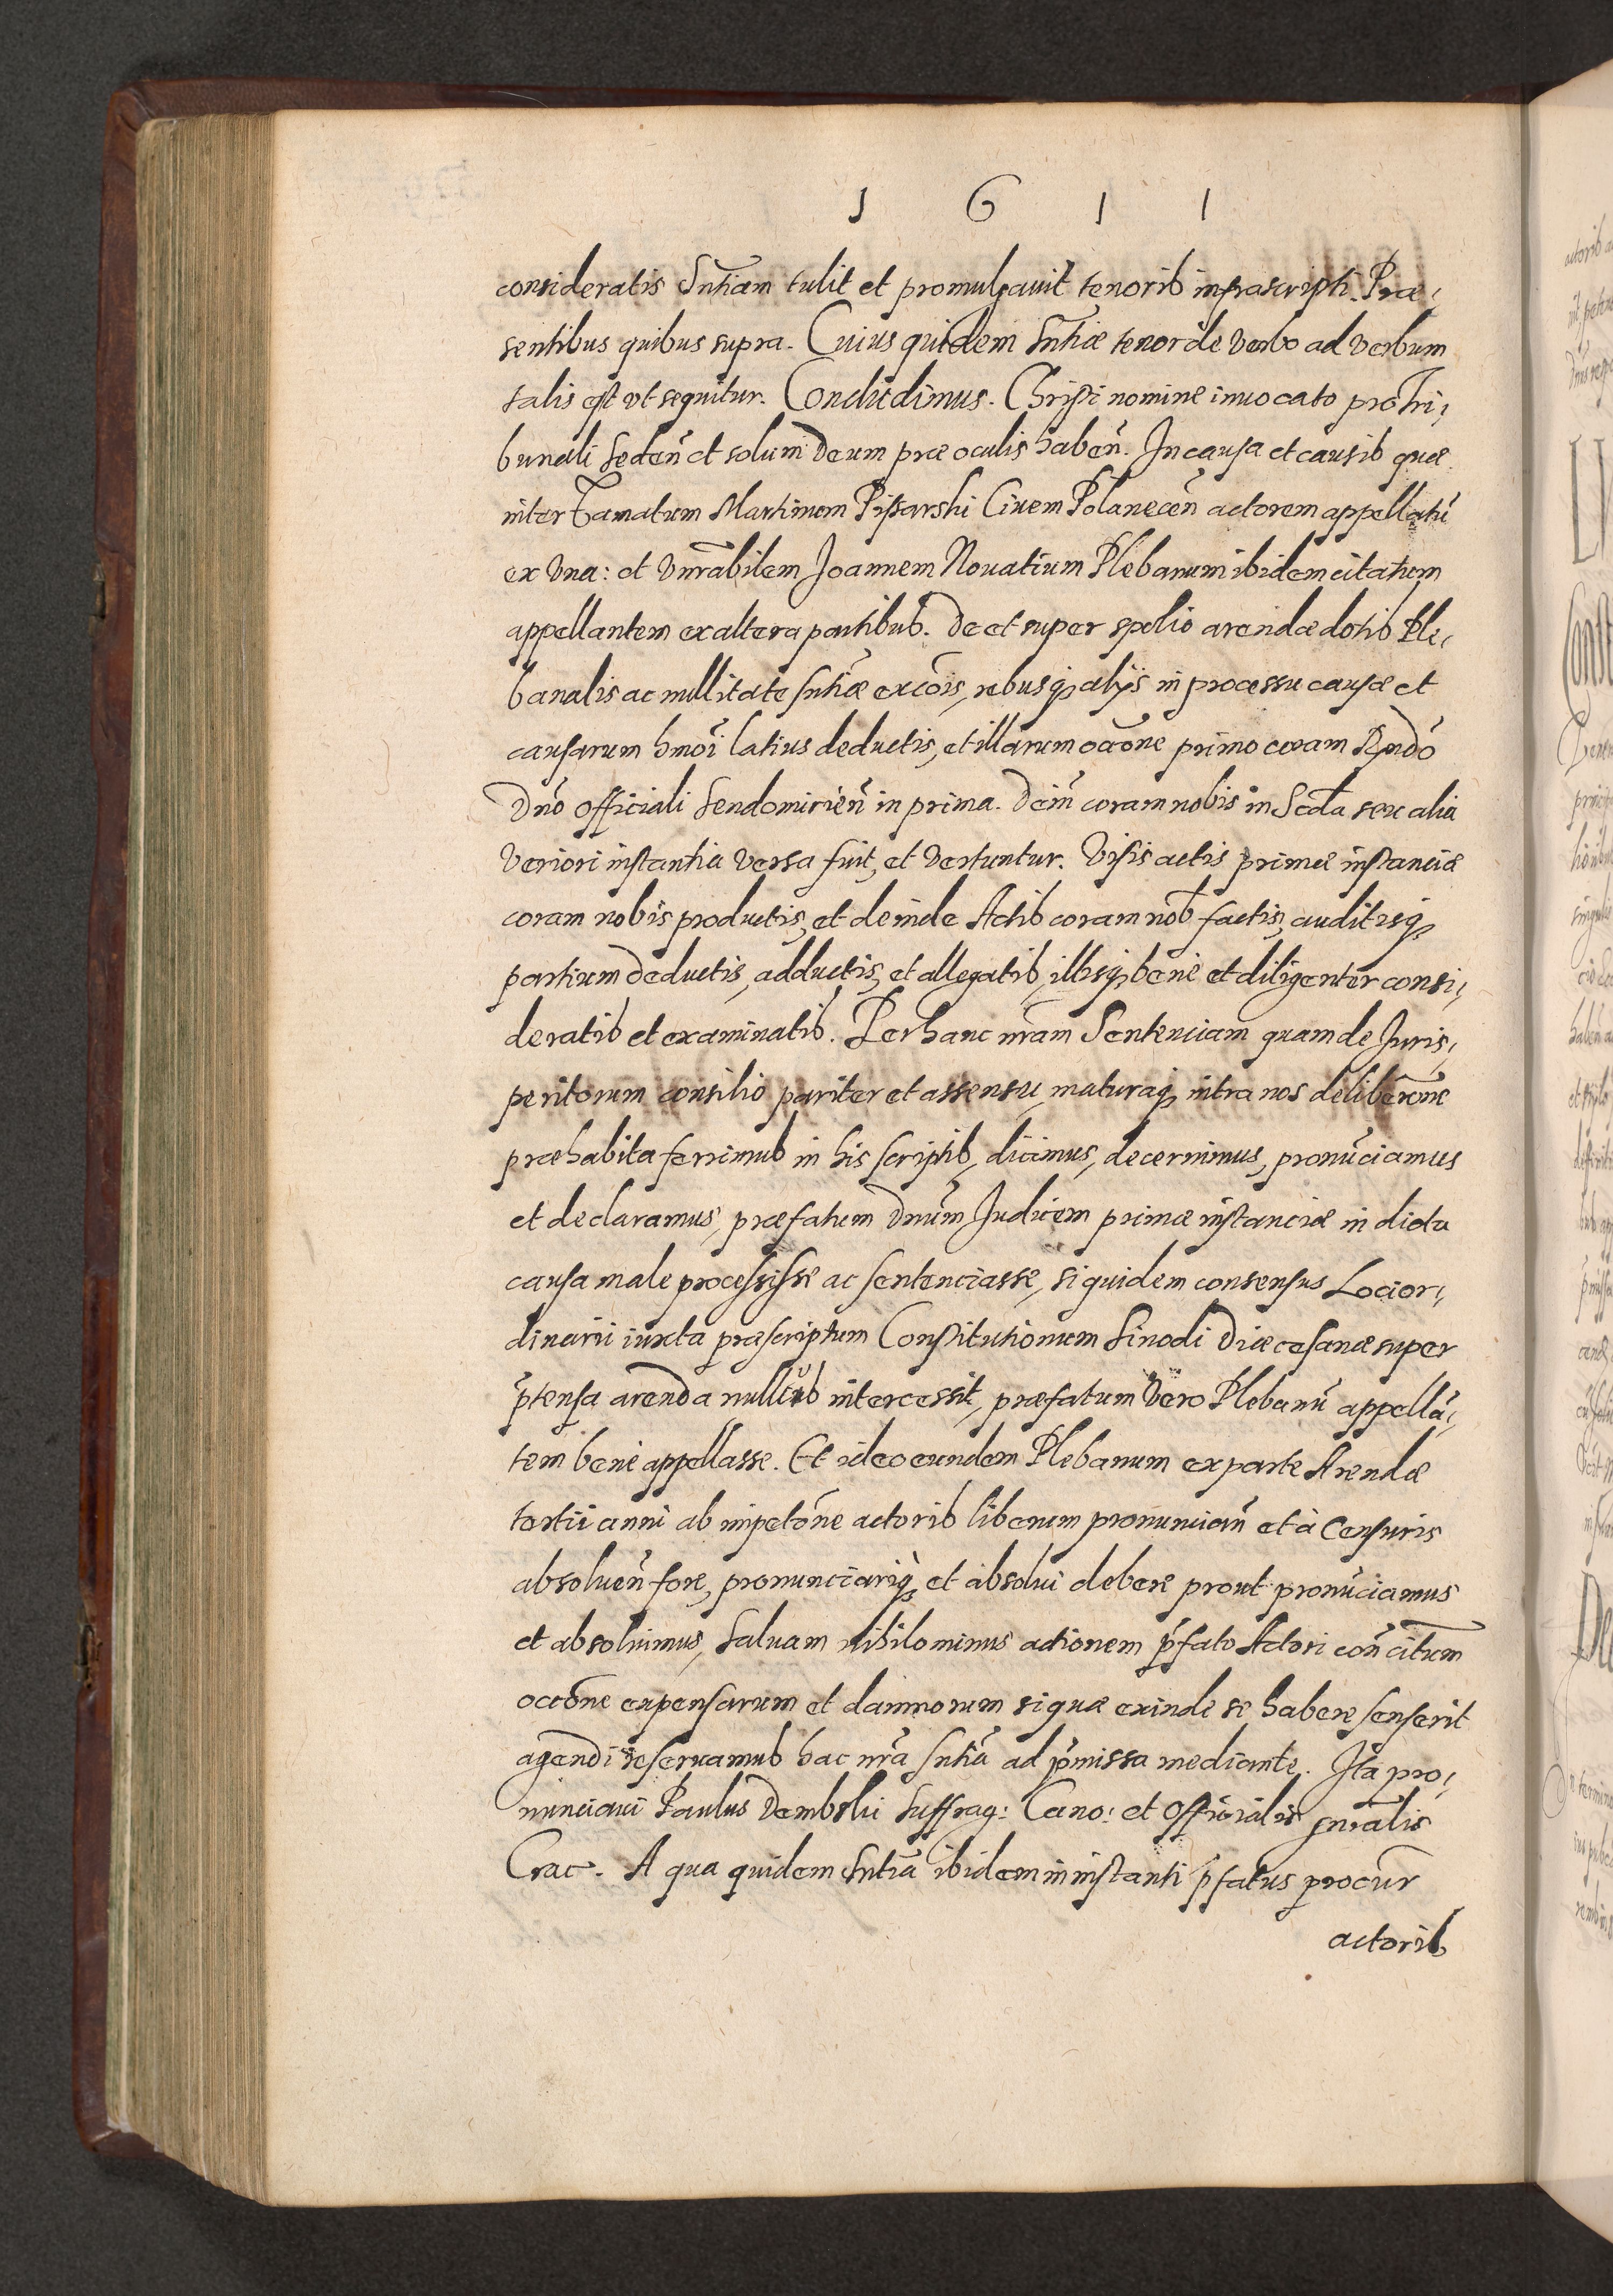 1 6 1 1
consideratis Sntiam tulit et promulgauit tenoris infrascripti. Præ,
sentibus quibus supra. Cuius quidem Sntiæ tenor de verbo ad verbum
talis est vt sequitur. Concludimus. Christi nomine inuocato pro Tri,
bunali Seden̄ et solum Deum præ oculis haben̄. In causa et causis quæ
inter famatum Martinum Pißarski Ciuem Polanecen̄ actorem appellatū
ex vna: et vnrabilem Joannem Nouatium Plebanum ibidem citatum
appellantem ex altera partibus. De et super spolio arendæ dotis Ple,
banalis ac nullitate sntiæ excōis, rebusq₃ alijs in processu causæ et
causarum hmōi latius deductis, et illarum occōne primo coram Rndō
Dnō Officiali Sendomirien̄ in prima. Dein̄ coram nobis in Scda seu alia
veriori instantia versa fuit, et vertuntur. Visis actis primæ instanciæ
coram nobis productis, et deinde Actis coram nob factis, auditisq₃
partium deductis, adductis, et allegatis, illisq₃ bene et diligenter consi,
deratis et examinatis. Per hanc nr̄am Sentenciam quam de Juris,
peritorum consilio pariter et assensu, maturaq₃ intra nos deliberōne
præhabita ferrimus in his scriptis, dicimus, decernimus, pronūciamus
et declaramus, præfatum Dnūm Judicem primæ instanciæ in dicta
causa male processisse ac sentenciasse, siquidem consensus Loci or,
dinarii iuxta præscriptum Constitutionum Sinodi Diæcesanæ super
p̄tensa arenda nullus intercessit, præfatum vero Plebanū appellā,
tem bene appellasse. Et ideo eundem Plebanum ex parte Arendæ
tertii anni ab impetōne actoris liberum pronuncian̄ et à Censuris
absoluen̄ fore, pronunciariq₃ et absolui debere prout pronūciamus
et absoluimus, saluam nihilominus actionem p̄fato Actori con̄ citum
occōne expensarum et damnorum si quæ exinde se habere senserit
agendi reseruamus hac nr̄a sntiā ad p̄missa mediante. Ita pro,
nunciaui Paulus Dembski Suffrag: Cano: et Officialis gnralis
Crac. A qua quidem Sntiā ibidem in instanti p̄fatus procūr
actoris